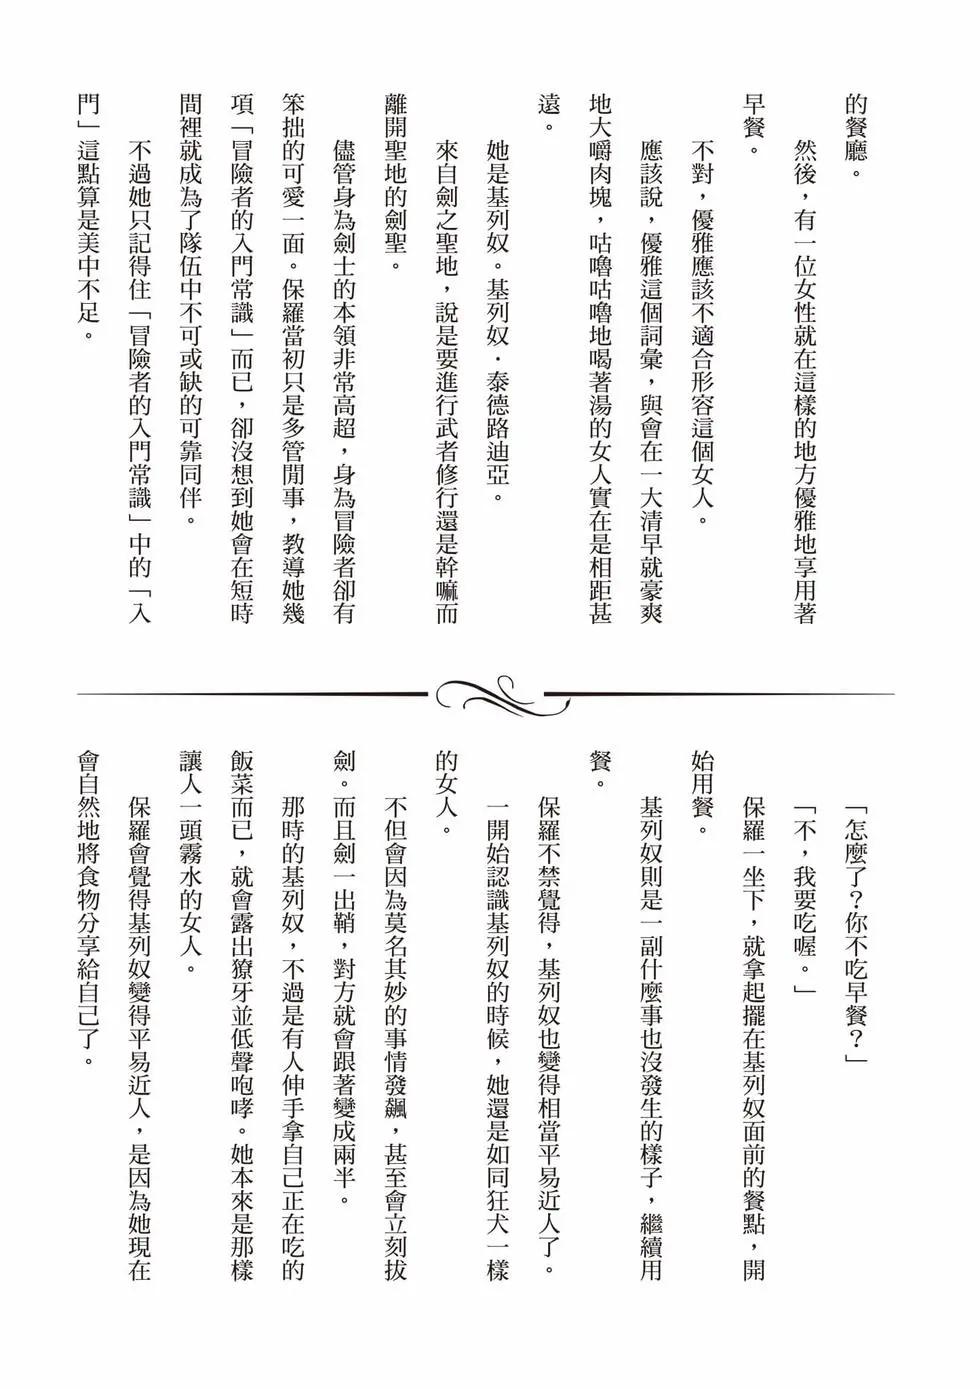 的餐廳。
然後，有一位女性就在這樣的地方優雅地享用著
早餐。
不對，優雅應該不適合形容這個女人。
應該說，優雅這個詞彙，與會在一大清早就豪爽
地大嚼肉塊，咕嚕咕嚕地喝著湯的女人實在是相距甚
遠。
她是基列奴。基列奴．泰德路迪亞。
來自劍之聖地，說是要進行武者修行還是幹嘛而
離開聖地的劍聖。
儘管身為劍士的本領非常高超，身為冒險者卻有
笨拙的可愛一面。保羅當初只是多管閒事，教導她幾
項「冒險者的入門常識」而已，卻沒想到她會在短時
間裡就成為了隊伍中不可或缺的可靠同伴。
不過她只記得住「冒險者的入門常識」中的「入
門」這點算是美中不足。
「怎麼了？你不吃早餐？」
「不，我要吃喔。」
保羅一坐下，就拿起擺在基列奴面前的餐點，開
始用餐。
基列奴則是一副什麼事也沒發生的樣子，繼續用
餐。
保羅不禁覺得，基列奴也變得相當平易近人了。
一開始認識基列奴的時候，她還是如同狂犬一樣
的女人。
不但會因為莫名其妙的事情發飆，甚至會立刻拔
劍。而且劍一出鞘，對方就會跟著變成兩半。
那時的基列奴，不過是有人伸手拿自己正在吃的
飯菜而已，就會露出獠牙並低聲咆哮。她本來是那樣
讓人一頭霧水的女人。
保羅會覺得基列奴變得平易近人，是因為她現在
會自然地將食物分享給自己了。